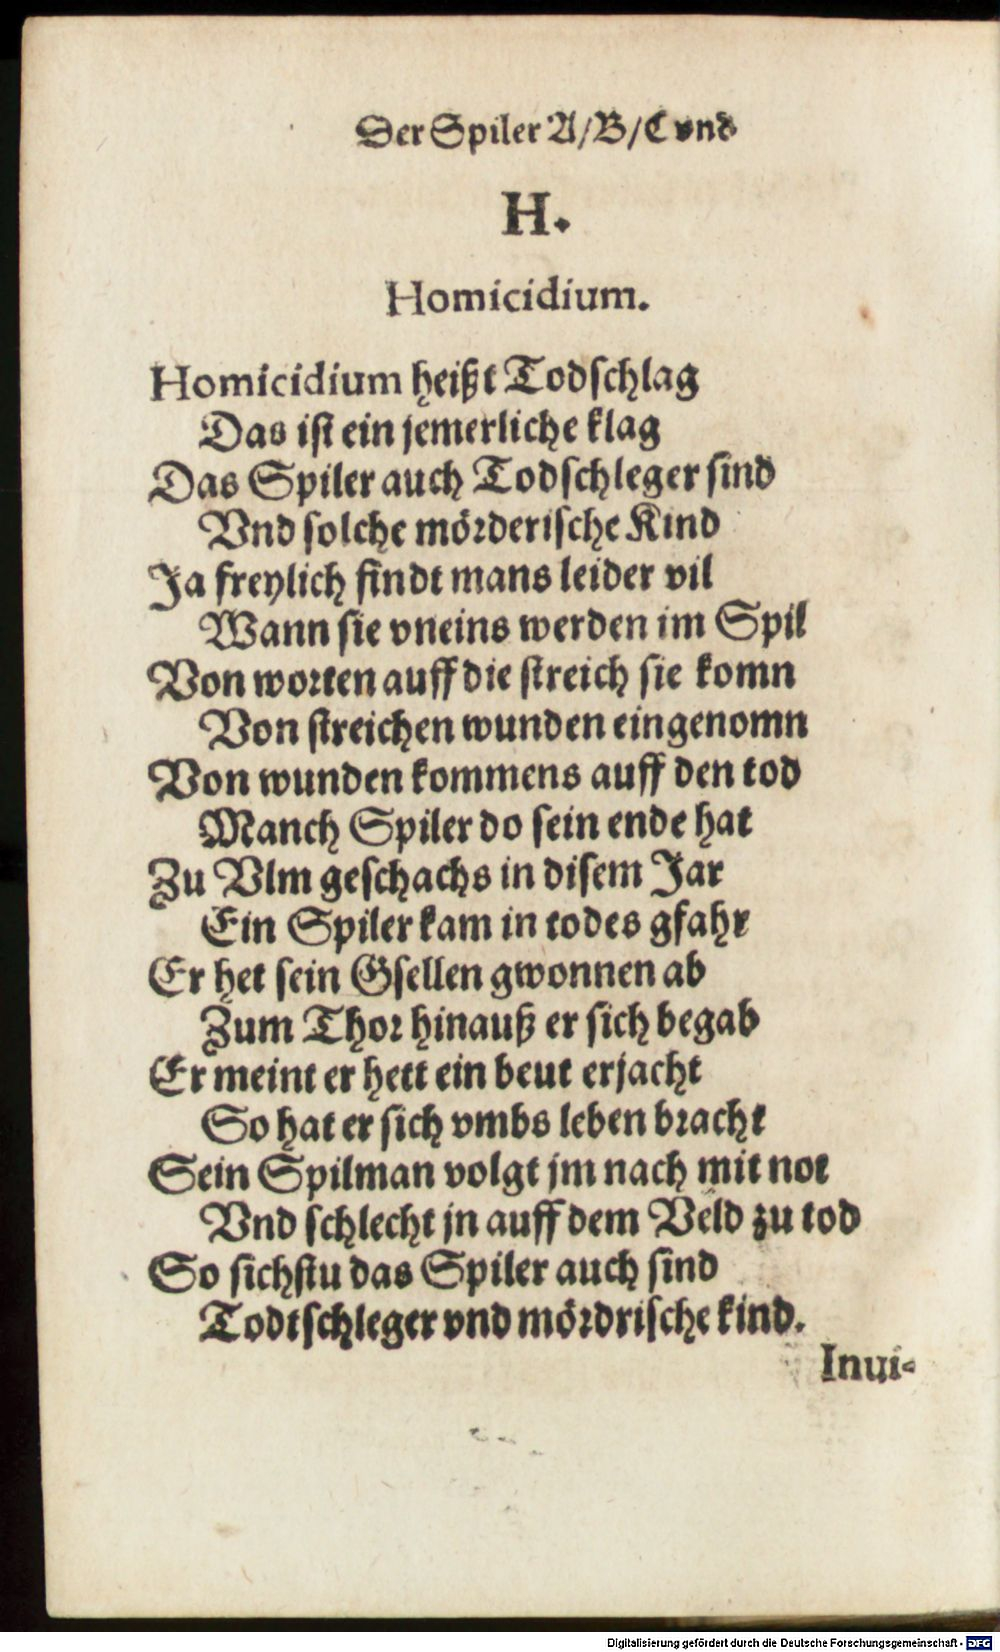 Der Spiler A/B/C vnd
H.
Homicidium.
Homicidium heißt Todschlag
Das ist ein jemerliche klag
Das Spiler auch Todschleger sind
Vnd solche mörderische Kind
Ja freylich findt mans leider vil
Wann sie vneins werden im Spil
Von worten auff die streich sie komn
Von streichen wunden eingenomn
Von wunden kommens auff den tod
Manch Spiler do sein ende hat
Zu Vlm geschachs in disem Jar
Ein Spiler kam in todes gfahr
Er het sein Gsellen gwonnen ab
Zum Thor hinauß er sich begab
Er meint er hett ein beut erjacht
So hat er sich vmbs leben bracht
Sein Spilman volgt jm nach mit not
Vnd schlecht jn auff dem Veld zu tod
So sichstu das Spiler auch sind
Todtschleger vnd mördrische kind.
Inui-
Digitalisierung gefördert durch die Deutsche Forschungsgemeinschaft - DFG